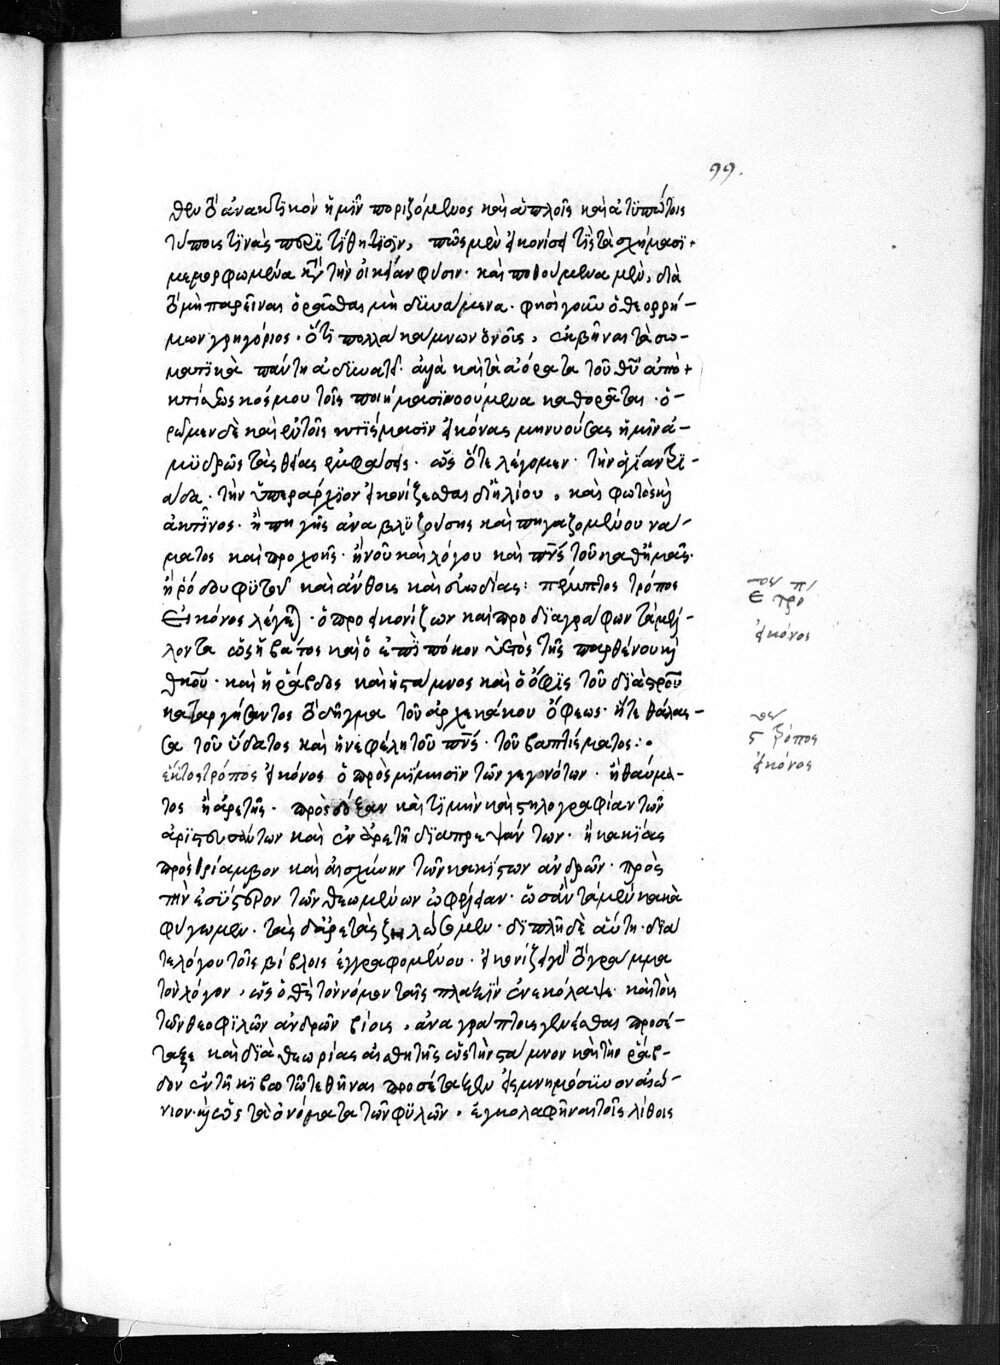 99.
θεν τὸ ἀνακτικὸν ἡμῖν ποριζόμενος καὶ ἁπλοῖς καὶ ἀτυπώτοις
τύποις τινὰς περιτίθησιν, πῶς μὲν εἰκονίσει τὶς τὰ σχήμασι
μεμορφωμένα κατὰ τὴν οἰκείαν φύσιν καὶ ποθούμενα μὲν, διὰ
τὸ μὴ παρεῖναι ὁρᾶσθαι μὴ δυνάμενα. φησὶ γοῦν ὁ θεορρή-
μων γρηγόριος. ὅτι πολλὰ κάμνων ὁ νοῦς, ἐκβῆναι τὰ σω-
ματικὰ πάντη ἀδυνατεῖ. ἀλλὰ καὶ τὰ ἀόρατα τοῦ θεοῦ ἀπὸ
κτίσεως κόσμου τοῖς ποιήμασι νοούμενα καθορᾶται. ὁ-
ρῶμεν δὲ καὶ ἐν τοῖς κτίσμασιν εἰκόνας μηνυούσας ἡμῖν ἀ-
μυδρῶς τὰς θείας ἐμφάσεις. ὡς ὅτε λέγομεν τὴν ἁγίαν τρι-
άδα. τὴν ὑπεράρχιον εἰκονίζεσθαι δι' ἡλίου, καὶ φωτὸς καὶ
ἀκτῖνος. ἢ πηγῆς ἀναβλυζούσης καὶ πηγαζομένου νά-
ματος καὶ προχοῆς. ἢ νοῦ καὶ λόγου καὶ πνς τοῦ καθ' ἡμᾶς.
ἢ ῥόδου φυτοῦ καὶ ἄνθους καὶ εὐωδίας: πέμπτος τρόπος
Εἰκόνος λέγεται ὁ προεικονίζων καὶ προδιαγράφων τὰ μέλ-
λοντα ὡς ἡ βάτος καὶ ὁ ἐπὶ πόκον ὑετὸς τῆς παρθένου καὶ
θκου. καὶ ἡ ῥάβδος καὶ ἡ στάμνος καὶ ὁ ὄφις τοῦ διὰ στρου
καταργήσαντος τὸ δῆγμα τοῦ ἀρχεκάκου ὄφεως. ἥτε θάλασ-
σα τοῦ ὕδατος καὶ ἡ νεφέλη τοῦ πνς τοῦ βαπτίσματος:
ἕκτος τρόπος εἰκόνος ὁ πρὸς μνήμην τῶν γεγονότων. ἢ θαύμα-
τος ἢ ἀρετῆς. πρὸς δόξαν καὶ τιμὴν καὶ στηλογραφίαν τῶν
ἀριστευσάντων καὶ ἐν ἀρετῇ διαπρεψάντων. ἢ κακίας
πρὸς θρίαμβον καὶ αἰσχύνην τῶν κακίστων ἀνδρῶν. πρὸς
τὴν ἐσύστερον τῶν θεωμένων ὠφέλειαν. ὡς ἂν τὰ μὲν κακὰ
φύγωμεν. τὰς δ' ἀρετὰς ζηλώσωμεν. διπλῆ δὲ αὕτη. διά
τε λόγου τοῖς βίβλοις ἐγγραφομένου. εἰκονίζει γὰρ τὸ γράμμα
τὸν λόγον, ὡς ὁ θς τὸν νόμον ταῖς πλαξὶν ἐνεκόλαψε καὶ τοὺς
τῶν θεοφιλῶν ἀνδρῶν βίους, ἀναγράπτους γενέσθαι προσέ-
ταξε καὶ διὰ θεωρίας αἰσθητῆς ὡς τὴν στάμνον καὶ τὴν ῥάβ-
δον ἐν τῇ κιβωτῷ τεθῆναι προσέταξεν εἰς μνημόσυνον αἰώ-
νιον. καὶ ὡς τὰ ὀνόματα τῶν φυλῶν, ἐγκολαφῆναι τοῖς λίθοις
ε τρο
εἰκόνος
ς τρόπος
εἰκόνος